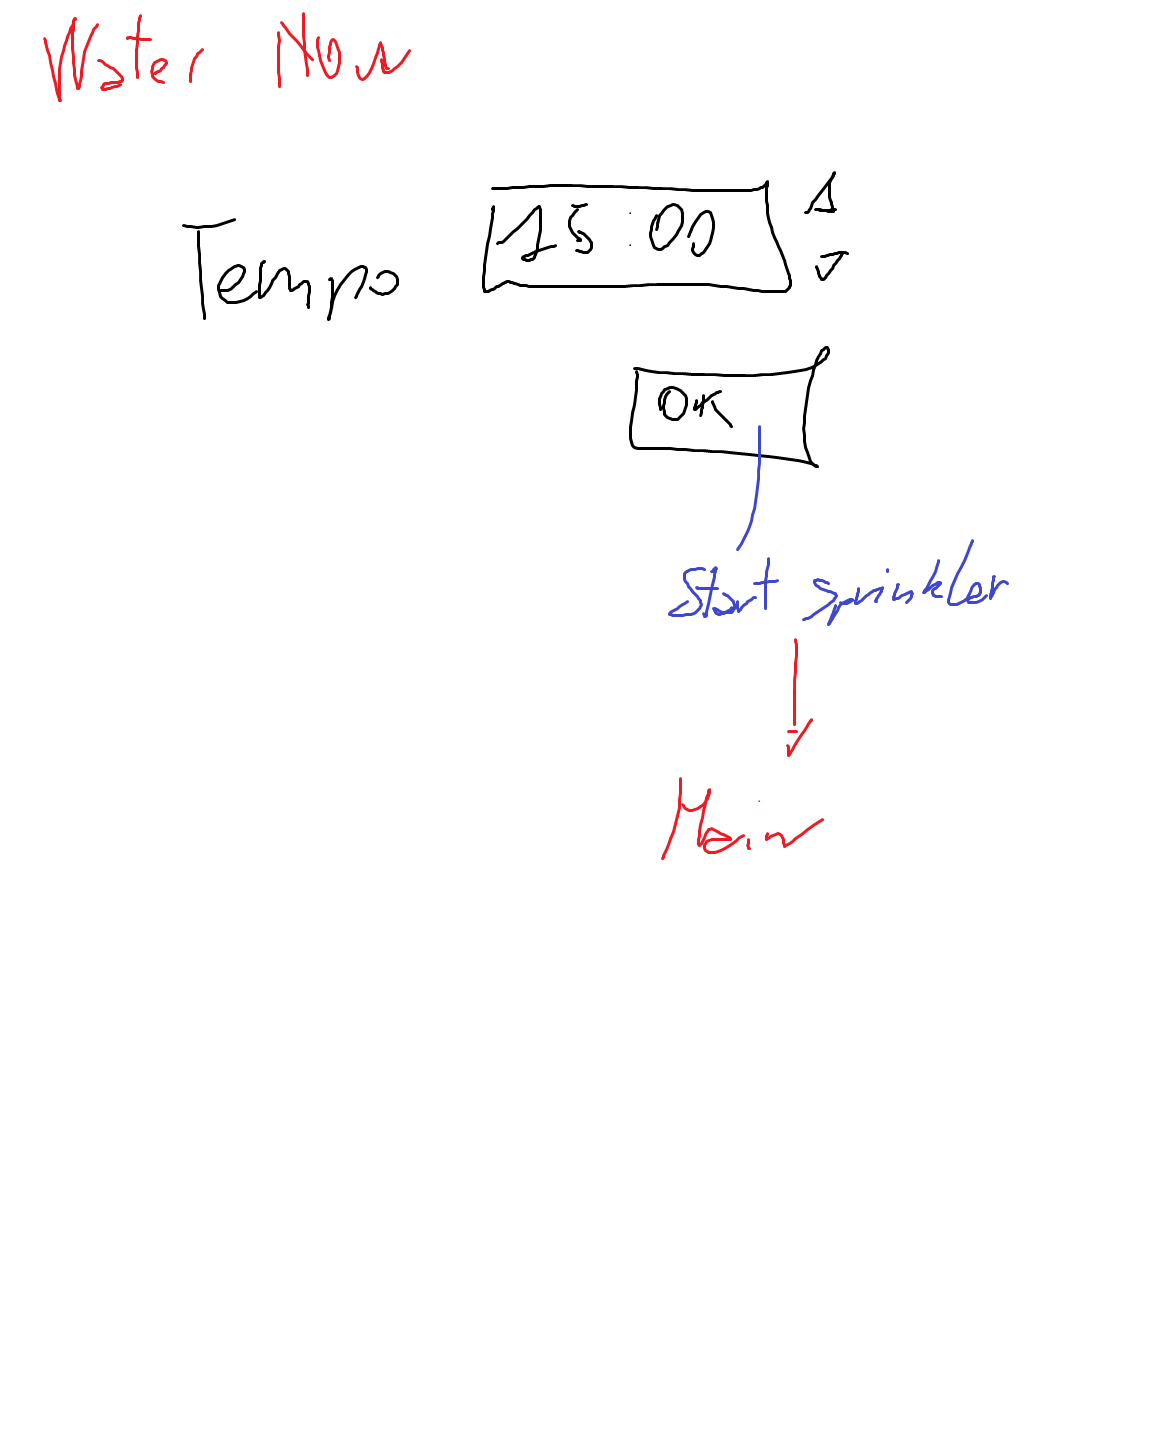 Water Now
Tempo 15:00
OK
Start sprinkler
Main